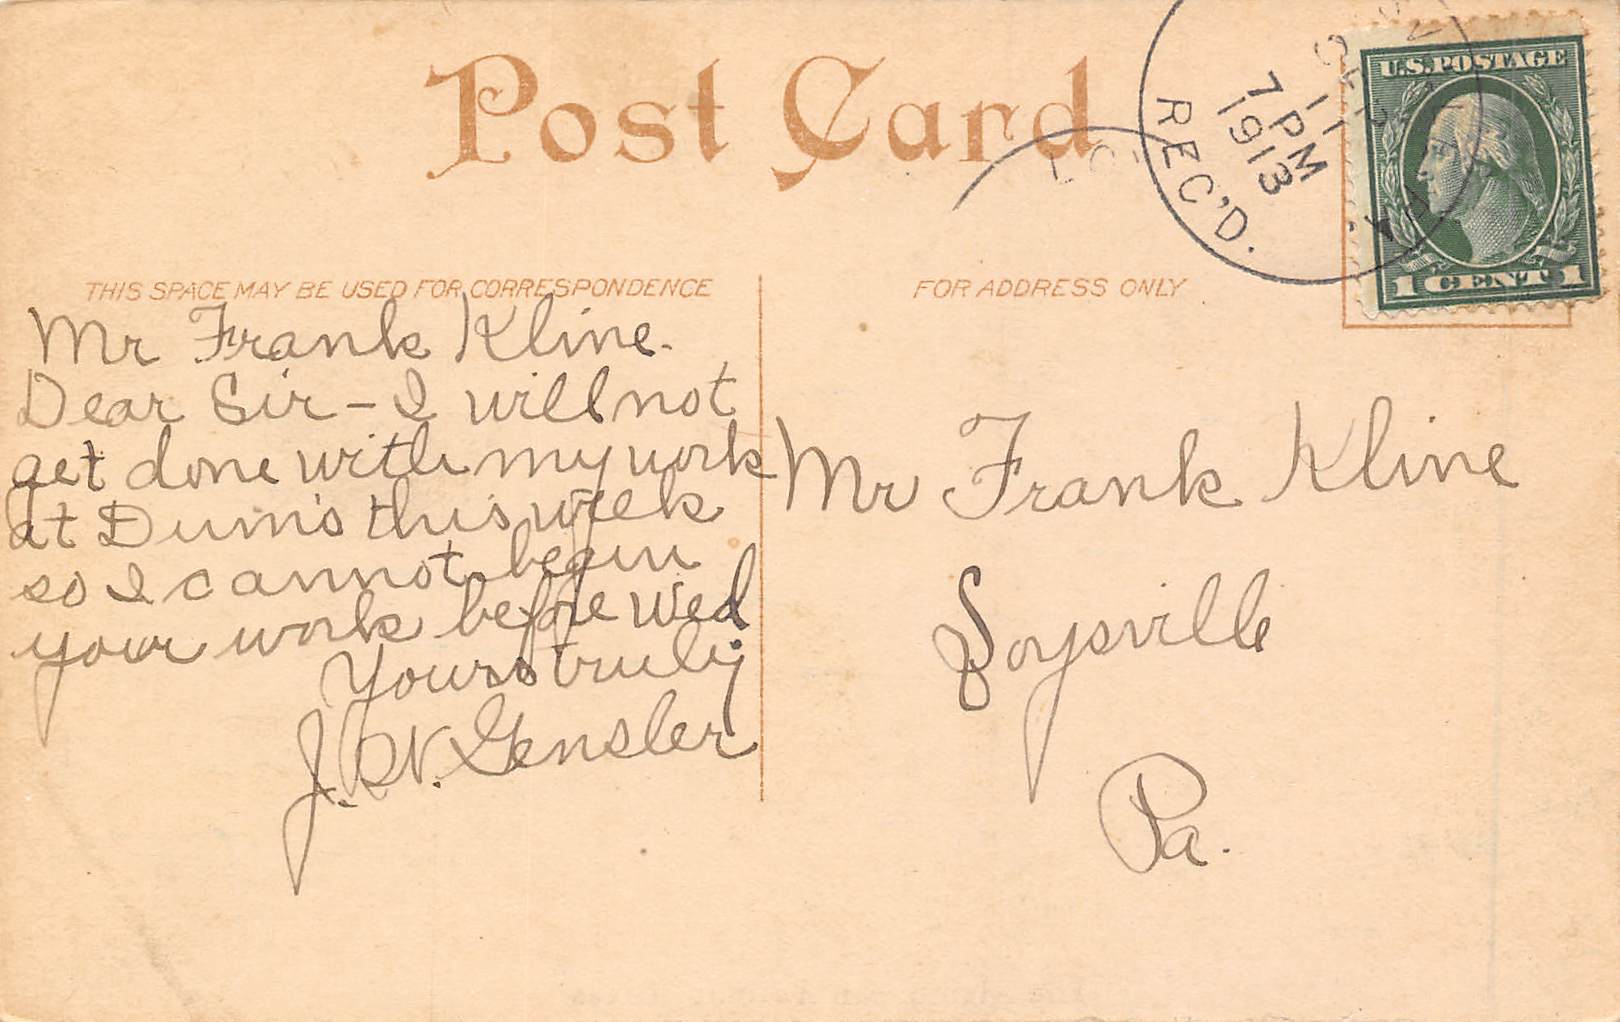 Post Card
U.S. POSTAGE
1 CENT 1
7 PM
1913
REC'D.
THIS SPACE MAY BE USED FOR CORRESPONDENCE
FOR ADDRESS ONLY
Mr Frank Kline.
Dear Sir - I will not
get done with my work
at Dum's this week
so I cannot begin
your work before Wed
Yours truly
J. W. Gensler
Mr Frank Kline
Loysville
Pa.